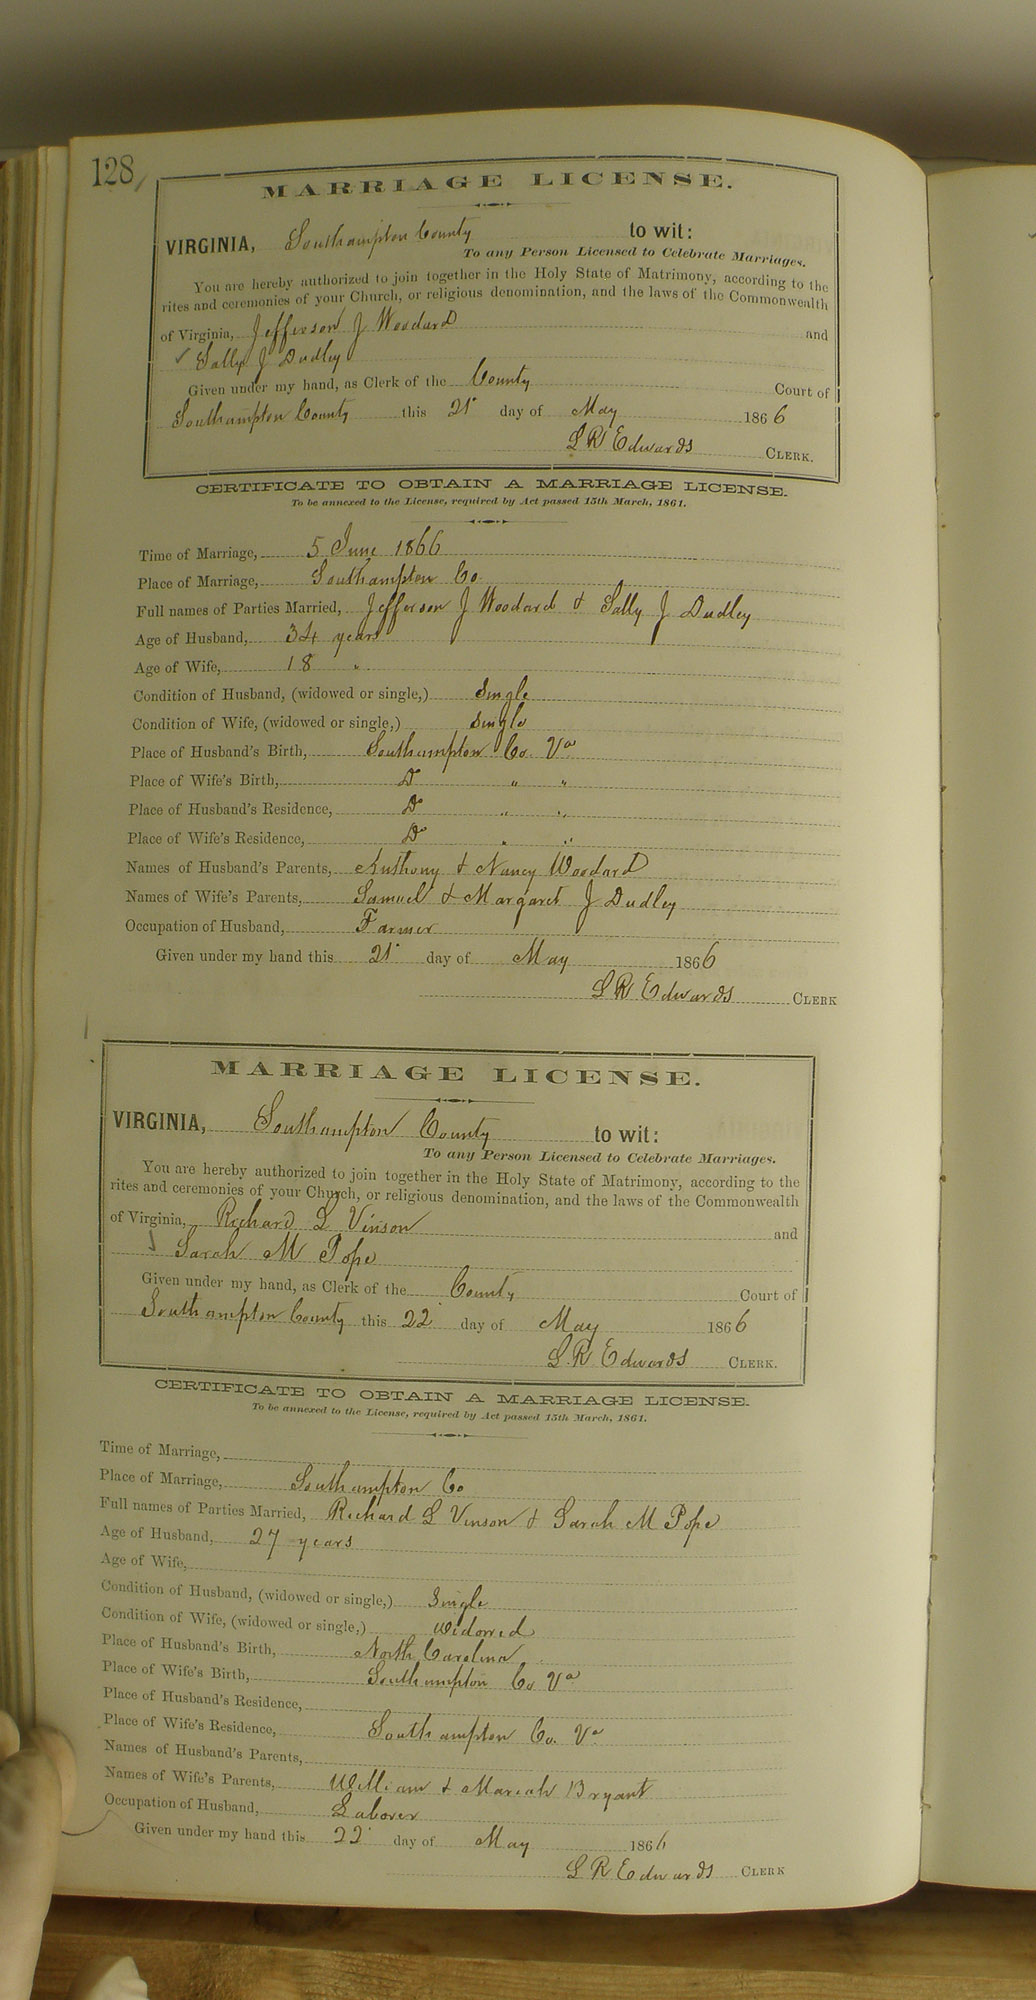 128
MARRIAGE LICENSE.
VIRGINIA, Southampton County to wit:
To any Person Licensed to Celebrate Marriages.
You are hereby authorized to join together in the Holy State of Matrimony, according to the
rites and ceremonies of your Church, or religious denomination, and the laws of the Commonwealth
of Virginia, Jefferson J Woodard and
✓ Sally J Dudley
Given under my hand, as Clerk of the County Court of
Southampton County this 21 day of May 1866
L R Edwards CLERK.
CERTIFICATE TO OBTAIN A MARRIAGE LICENSE.
To be annexed to the License, required by Act passed 15th March, 1861.
Time of Marriage, 5 June 1866
Place of Marriage, Southampton Co.
Full names of Parties Married, Jefferson J Woodard & Sally J Dudley
Age of Husband, 34 years
Age of Wife, 18 "
Condition of Husband, (widowed or single,) Single
Condition of Wife, (widowed or single,) Single
Place of Husband's Birth, Southampton Co. Va
Place of Wife's Birth, Do " "
Place of Husband's Residence, Do " "
Place of Wife's Residence, Do " "
Names of Husband's Parents, Anthony & Nancy Woodard
Names of Wife's Parents, Samuel & Margaret J Dudley
Occupation of Husband, Farmer
Given under my hand this 21 day of May 1866
L R Edwards CLERK
MARRIAGE LICENSE.
VIRGINIA, Southampton County to wit:
To any Person Licensed to Celebrate Marriages.
You are hereby authorized to join together in the Holy State of Matrimony, according to the
rites and ceremonies of your Church, or religious denomination, and the laws of the Commonwealth
of Virginia, Richard L Vinson and
Sarah M Pope
Given under my hand, as Clerk of the County Court of
Southampton County this 22 day of May 1866
L. R Edwards CLERK.
CERTIFICATE TO OBTAIN A MARRIAGE LICENSE.
To be annexed to the License, required by Act passed 15th March, 1861.
Time of Marriage,
Place of Marriage, Southampton Co
Full names of Parties Married, Richard L Vinson & Sarah M Pope
Age of Husband, 27 years
Age of Wife,
Condition of Husband, (widowed or single,) Single
Condition of Wife, (widowed or single,) Widowed
Place of Husband's Birth, North Carolina
Place of Wife's Birth, Southampton Co Va
Place of Husband's Residence,
Place of Wife's Residence, Southampton Co. Va
Names of Husband's Parents,
Names of Wife's Parents, William & Mariah Bryant
Occupation of Husband, Laborer
Given under my hand this 22 day of May 1866
L R Edwards CLERK